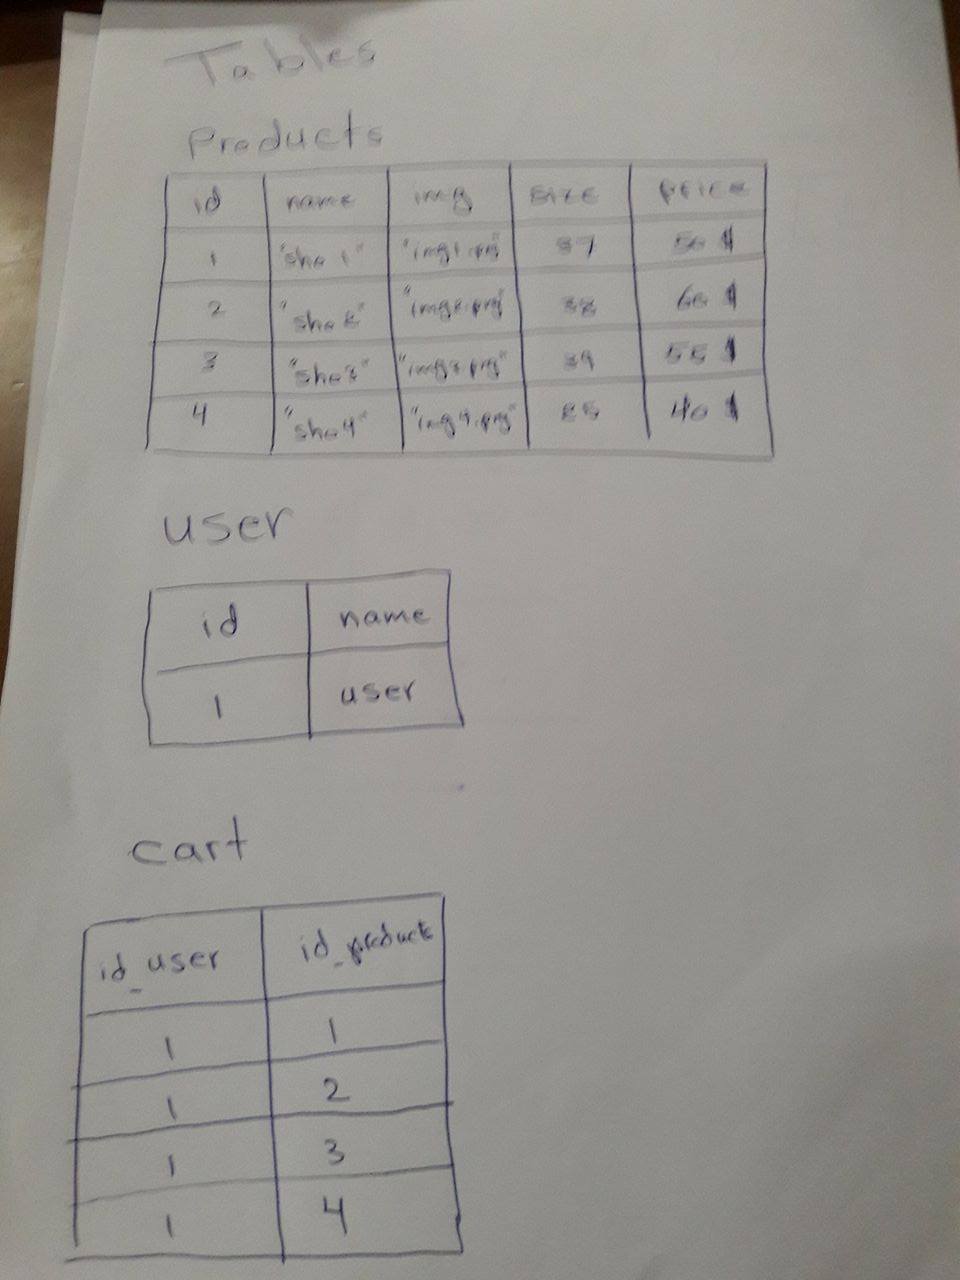 Tables
Products
id name img size price
1 "sho 1" "img1.png" 37 50 $
2 "sho 2" "img2.png" 38 60 $
3 "sho3" "img3.png" 39 55 $
4 "sho4" "img4.png" 40 $
user
id name
1 user
cart
id_user id_products
1 1
1 2
1 3
1 4